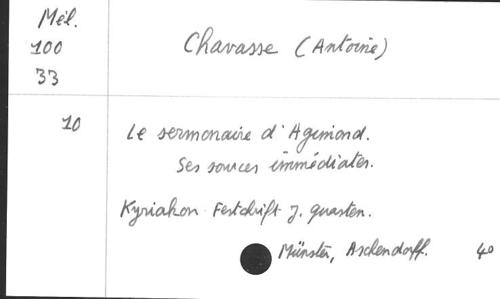 Mél.
100
33
Chavasse (Antoine)
10
Le sermonaire d'Agimond.
Ses sources immédiates.
Kyriakon. Festchrift J. Quasten.
Münster, Aschendorff. 40